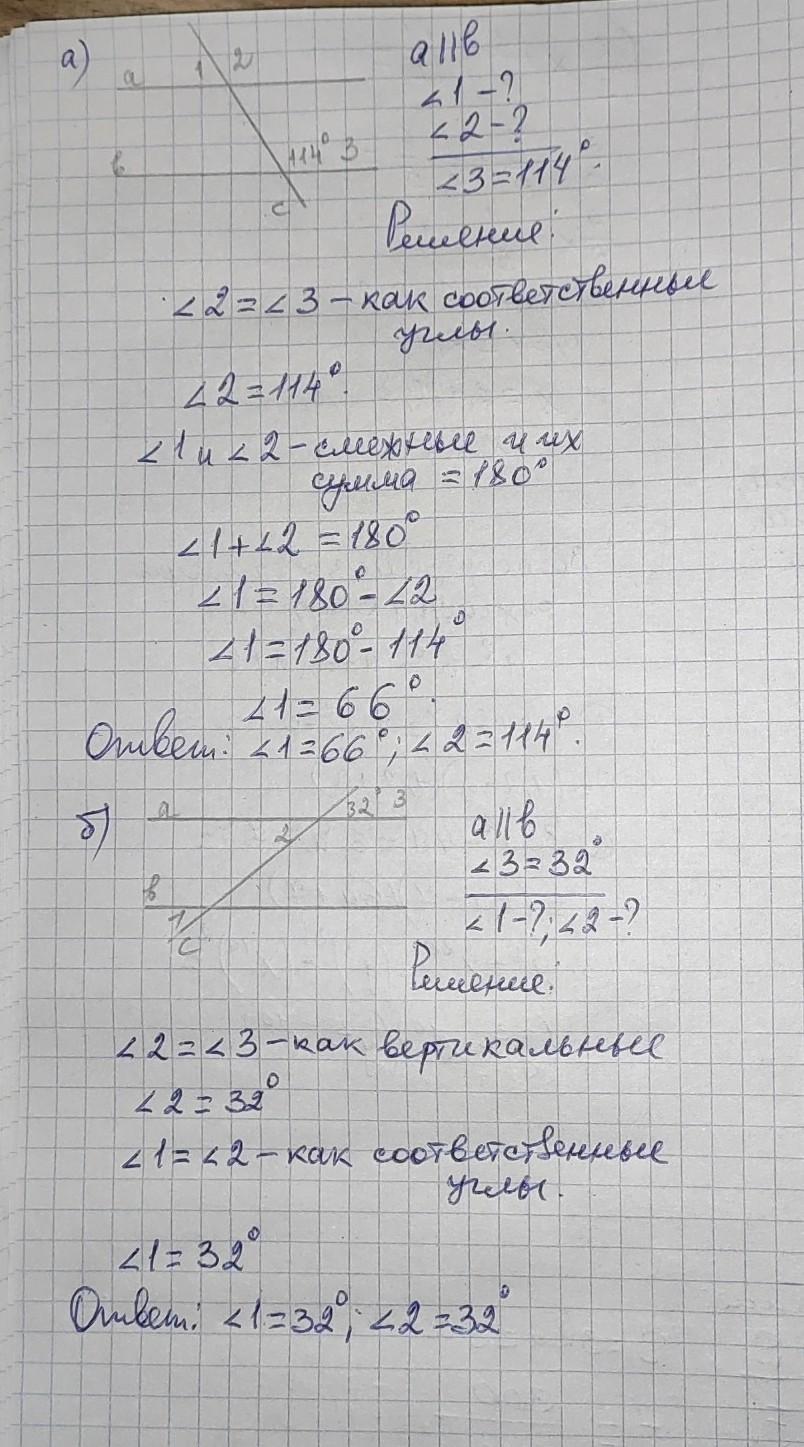 а)
a 1 2
b 114° 3
c
a||b
∠1 - ?
∠2 - ?
∠3 = 114°.
Решение:
∠2 = ∠3 - как соответственные
углы.
∠2 = 114°.
∠1 и ∠2 - смежные и их
сумма = 180°
∠1 + ∠2 = 180°
∠1 = 180° - ∠2
∠1 = 180° - 114°
∠1 = 66°.
Ответ: ∠1 = 66°; ∠2 = 114°.
б)
a 32° 3
2
b
1
c
a||b
∠3 = 32°
∠1 - ?; ∠2 - ?
Решение:
∠2 = ∠3 - как вертикальные
∠2 = 32°
∠1 = ∠2 - как соответственные
углы.
∠1 = 32°
Ответ: ∠1 = 32°; ∠2 = 32°